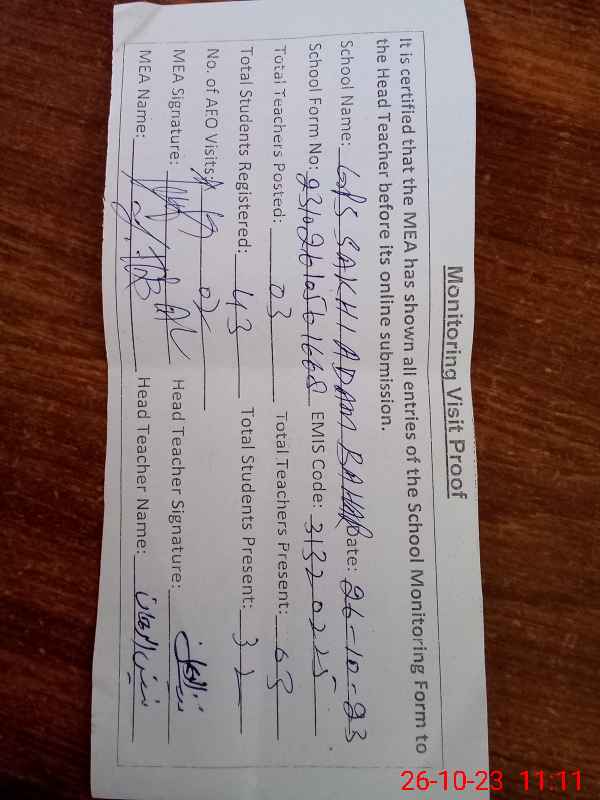 Monitoring Visit Proof
It is certified that the MEA has shown all entries of the School Monitoring Form to
the Head Teacher before its online submission.
School Name: GPS SAKHI ADAM BAHAR Date: 26-10-23
School Form No: EMIS Code: 31320225
Total Teachers Posted: 03 Total Teachers Present: 03
Total Students Registered: 43 Total Students Present: 32
No. of AEO Visits: 02
MEA Signature: Head Teacher Signature:
MEA Name: Head Teacher Name:
26-10-23 11:11